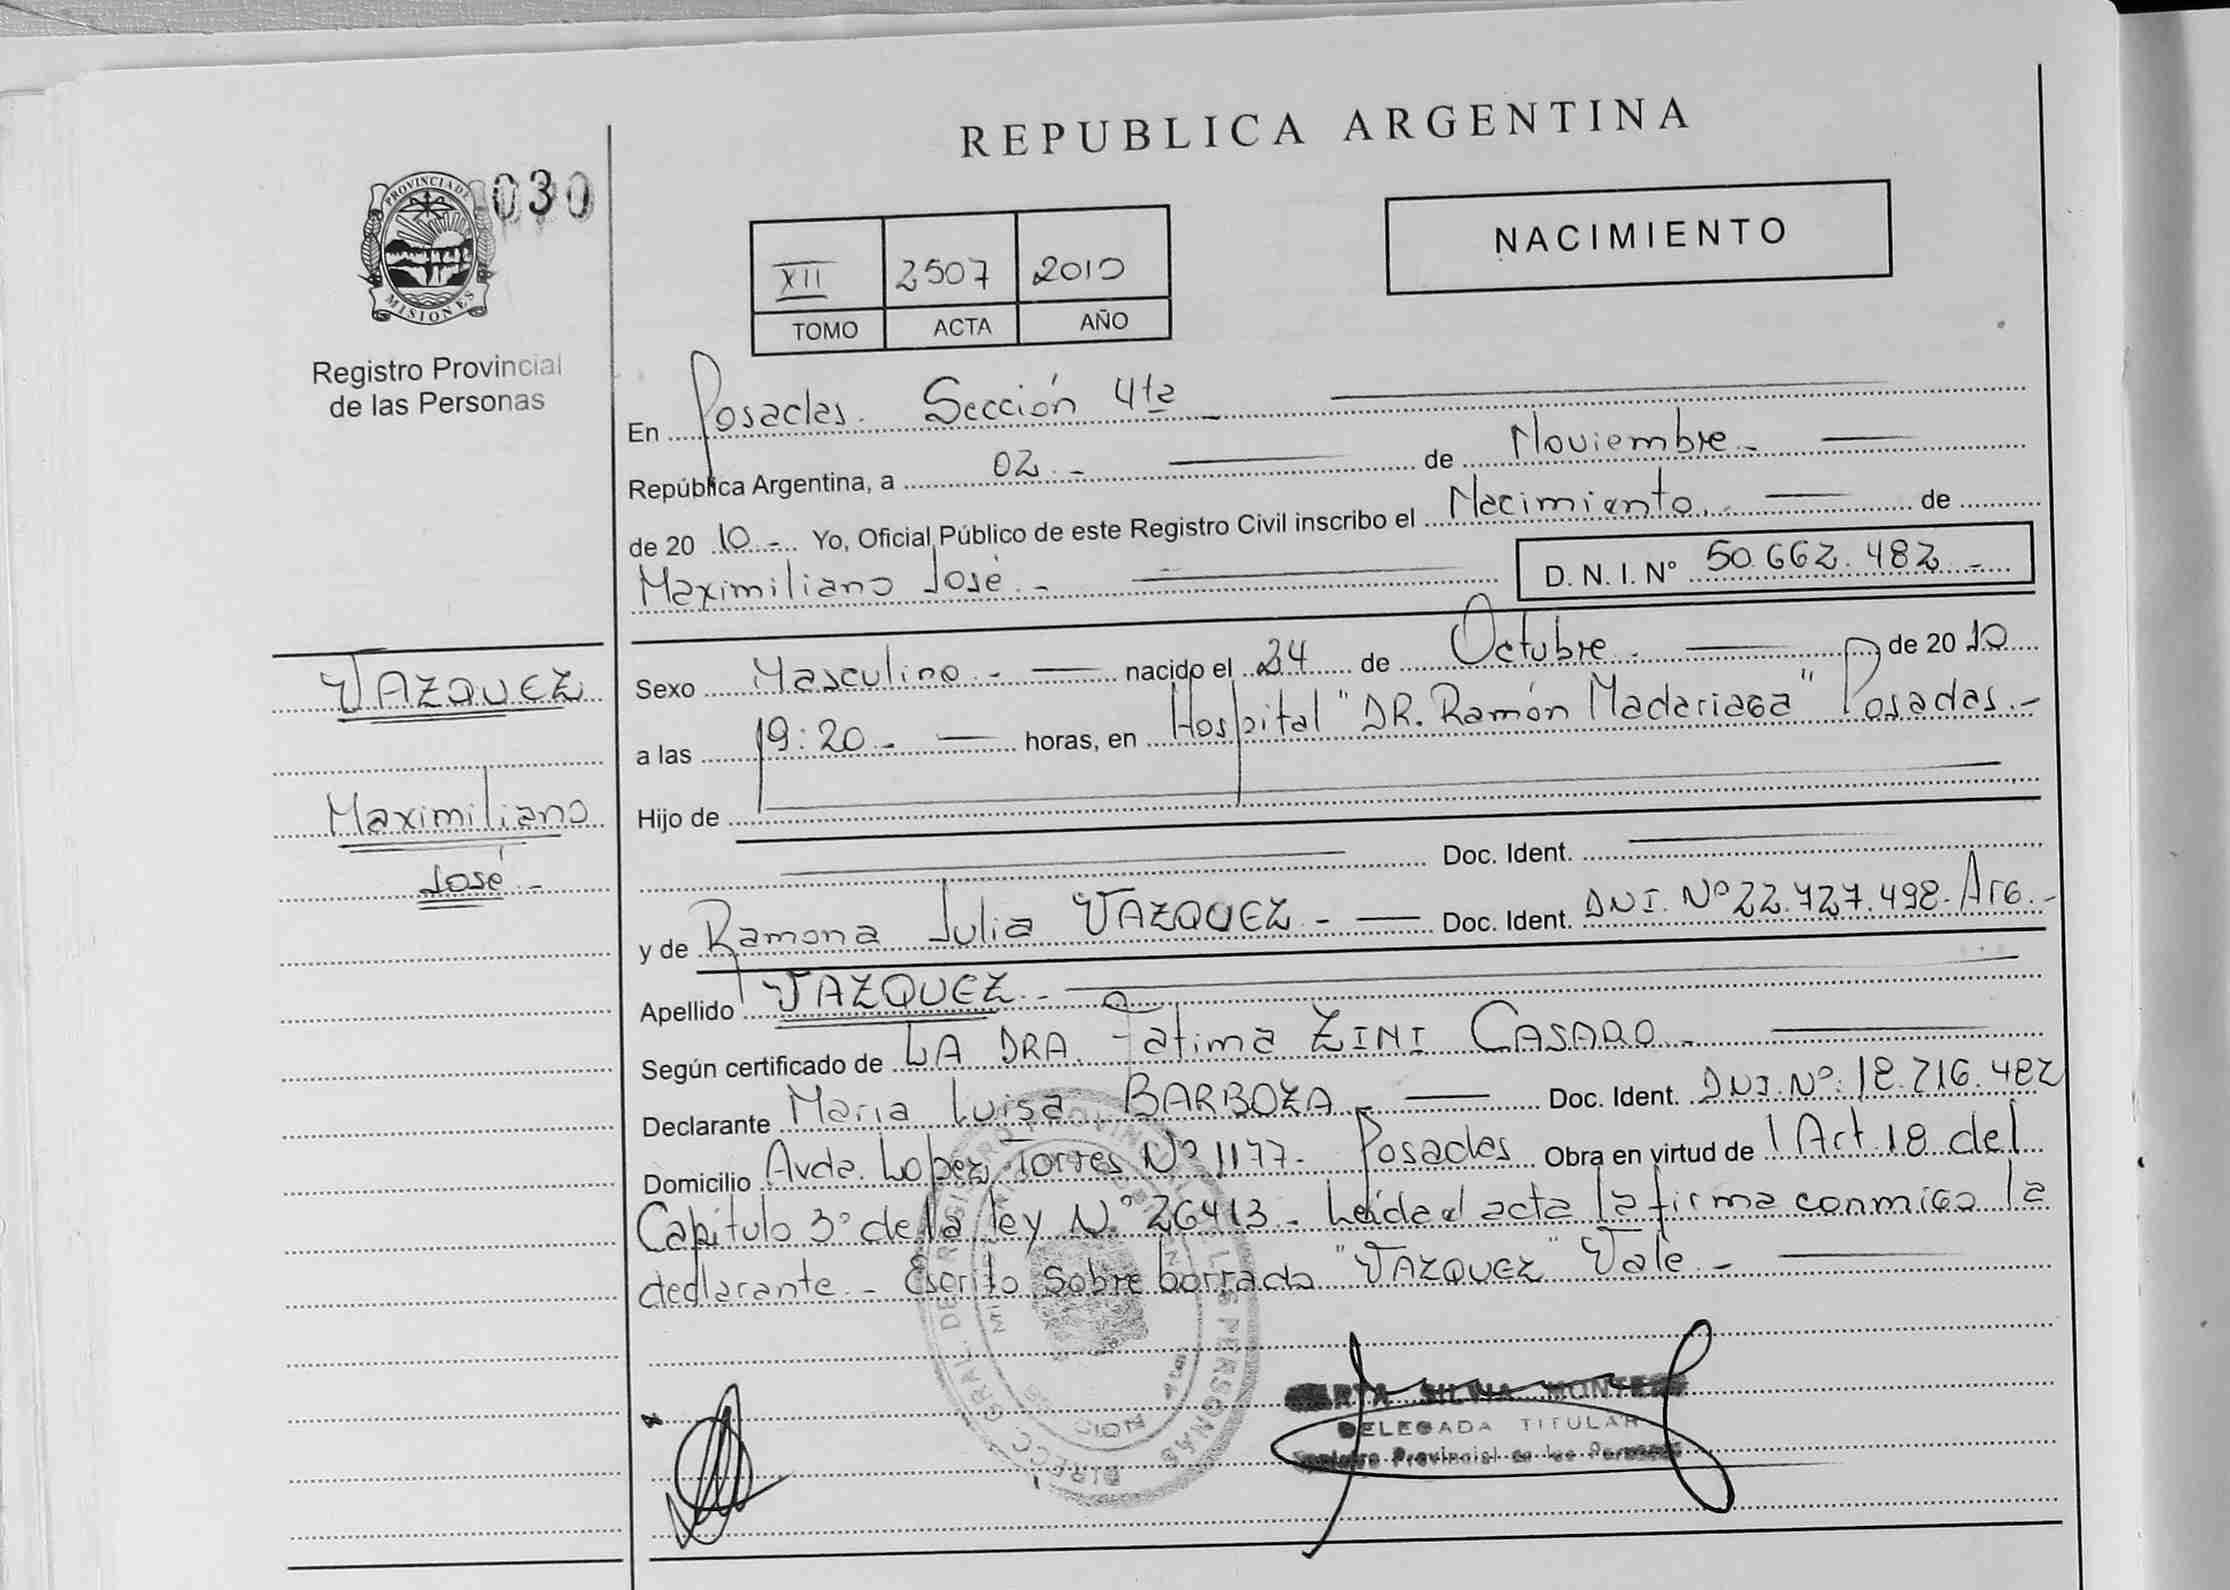 REPUBLICA ARGENTINA
030
PROVINCIA DE
MISIONES
Registro Provincial
de las Personas
NACIMIENTO
XII 2507 2010
TOMO ACTA AÑO
En Posadas. Sección 4ta
República Argentina, a 02.- de Noviembre.-
de 20 10.- Yo, Oficial Público de este Registro Civil inscribo el Nacimiento.- de
Maximiliano José.- D. N. I. Nº 50.662.482.-
VAZQUEZ
Maximiliano
José.-
Sexo Masculino.- nacido el 24 de Octubre.- de 20 10
a las 19:20.- horas, en Hospital "DR. Ramón Madariaga" Posadas.-
Hijo de
Doc. Ident.
y de Ramona Julia VAZQUEZ.- Doc. Ident. DNI. Nº 22.727.498. Arg.-
Apellido VAZQUEZ.-
Según certificado de LA DRA. Fatima ZINI CASARO.-
Declarante Maria Luisa BARBOZA.- Doc. Ident. DNI. Nº. 18.716.482
Domicilio Avda. Lopez Torres Nº 1177. Posadas Obra en virtud de l Art. 18 del
Capítulo 3º de la ley Nº 26413.- Leída el acta la firma conmigo la
declarante.- Escrito sobre borrado "VAZQUEZ" Vale.-
SILVIA MONTERO
DELEGADA TITULAR
Registro Provincial de las Personas